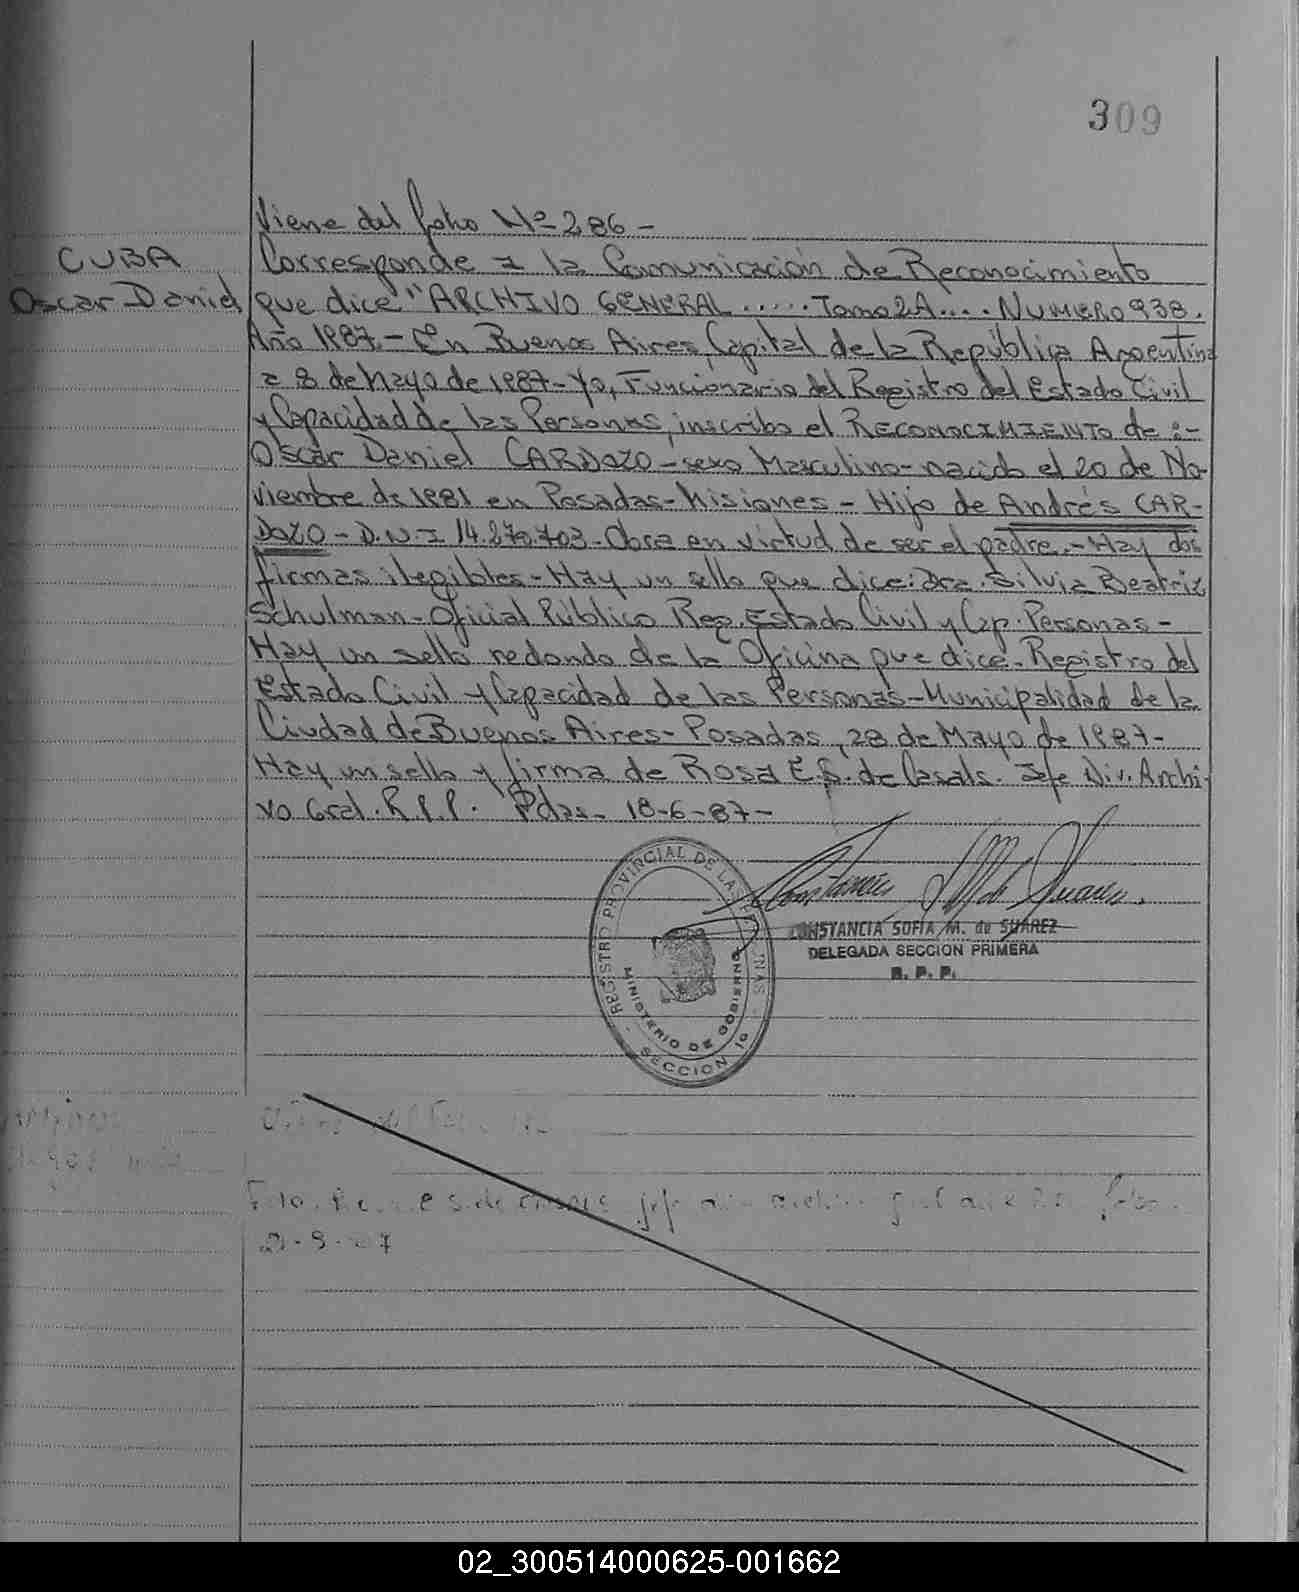 309
Viene del folio Nº 286-
CUBA
Oscar Daniel
Corresponde a la Comunicación de Reconocimiento
que dice "ARCHIVO GENERAL ..... Tomo 2A.... NUMERO 938.
Año 1987.- En Buenos Aires, Capital de la República Argentina
a 8 de Mayo de 1987- Yo, Funcionario del Registro del Estado Civil
y Capacidad de las Personas, inscribo el RECONOCIMIENTO de :-
Oscar Daniel CARDOZO - sexo Masculino - nacido el 20 de No-
viembre de 1981 en Posadas - Misiones - Hijo de Andrés CAR-
DOZO - D.N.I 14.270.703. Obra en virtud de ser el padre.- Hay dos
firmas ilegibles - Hay un sello que dice: Dra. Silvia Beatriz
Schulman - Oficial Público Reg. Estado Civil y Cap. Personas -
Hay un sello redondo de la Oficina que dice - Registro del
Estado Civil y Capacidad de las Personas - Municipalidad de la
Ciudad de Buenos Aires - Posadas, 28 de Mayo de 1987-
Hay un sello y firma de Rosa E.S. de Casals. Jefe Div. Archi-
vo Gral. R.P.P. Pdas- 18-6-87-
REGISTRO PROVINCIAL DE LAS PERSONAS
MINISTERIO DE GOBIERNO
SECCION 1º
CONSTANCIA SOFIA M. de SUAREZ
DELEGADA SECCION PRIMERA
R. P. P.
02_300514000625-001662